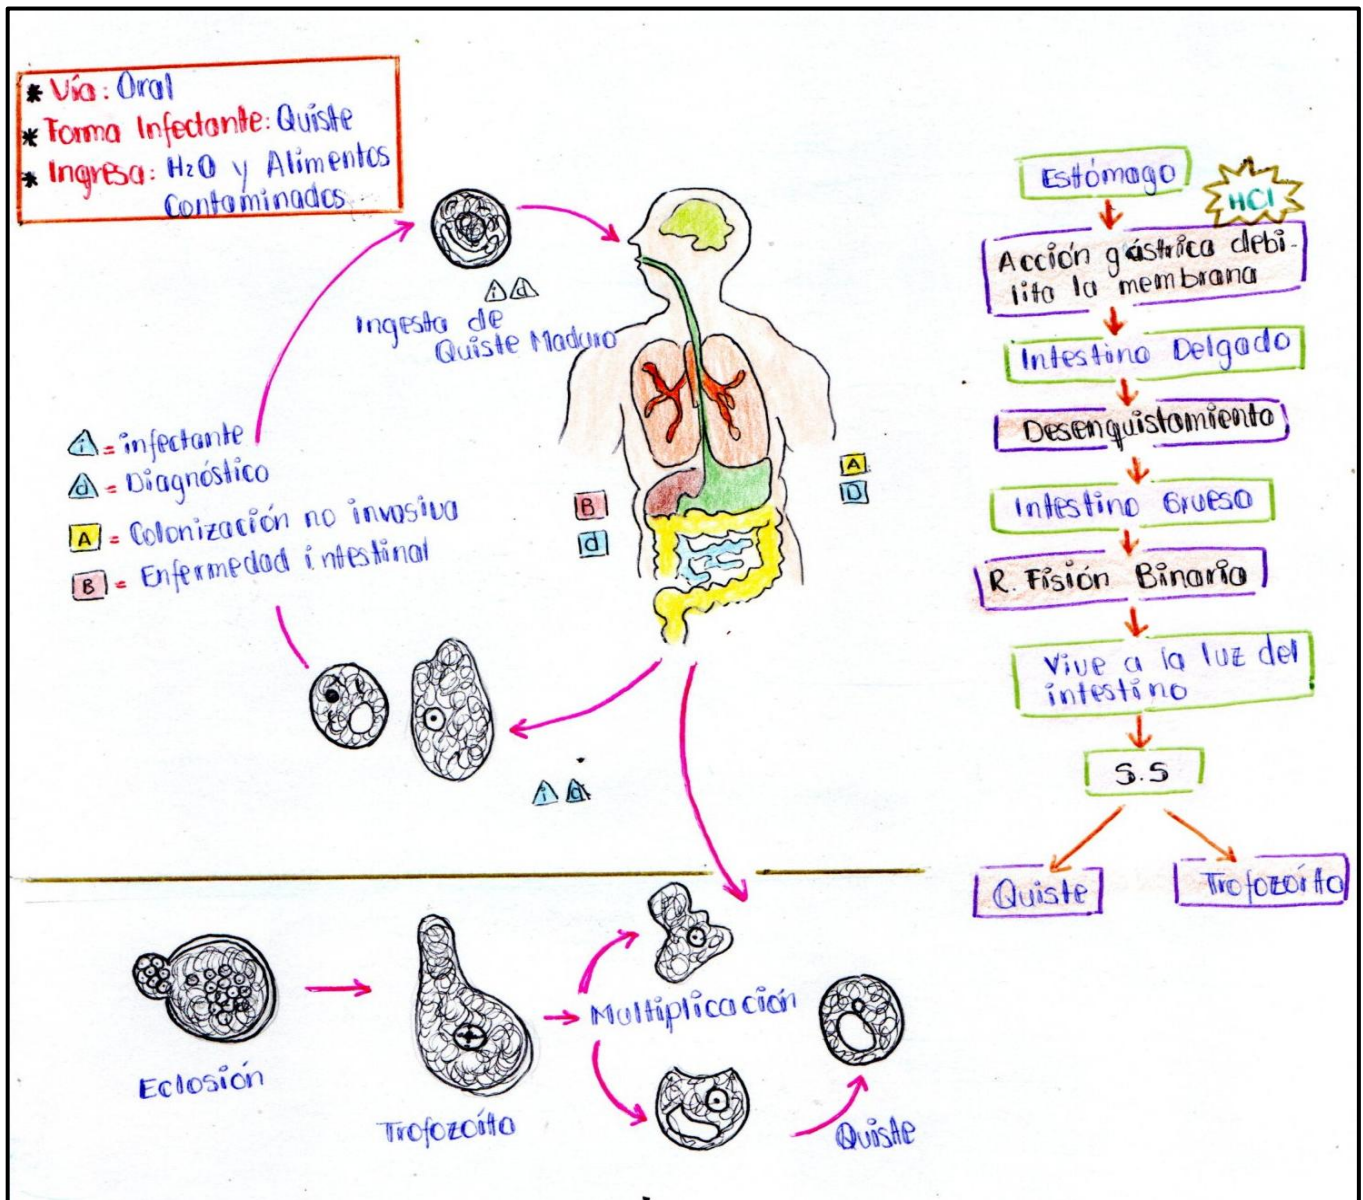 * Vía: Oral
* Forma Infectante: Quiste
* Ingresa: H₂O y Alimentos
Contaminados
i d
Ingesta de
Quiste Maduro
i = infectante
d = Diagnóstico
A = Colonización no invasiva
B = Enfermedad intestinal
B
d
A
D
i d
Eclosión
Trofozoíto
Multiplicación
Quiste
Estómago
HCl
Acción gástrica debi-
lita la membrana
Intestino Delgado
Desenquistamiento
Intestino Grueso
R. Fisión Binaria
Vive a la luz del
intestino
S.S
Quiste
Trofozoíto